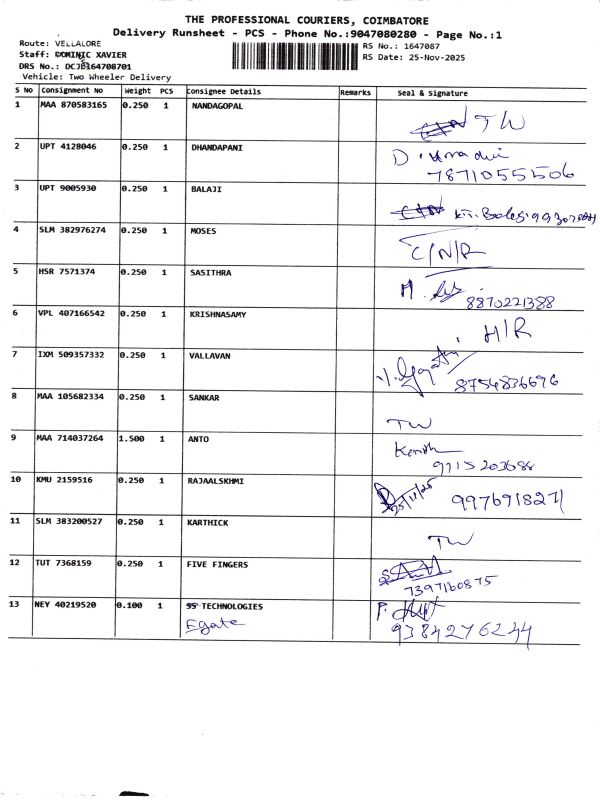 THE PROFESSIONAL COURIERS, COIMBATORE
Delivery Runsheet - PCS - Phone No.:9047080280 - Page No.:1
Route: VELLALORE
Staff: DOMINIC XAVIER
DRS No.: DCJB164708701
Vehicle: Two Wheeler Delivery
RS No.: 1647087
RS Date: 25-Nov-2025
S No Consignment No Weight PCS Consignee Details Remarks Seal & Signature
1 MAA 870583165 0.250 1 NANDAGOPAL TW
2 UPT 4128046 0.250 1 DHANDAPANI
7871055506
3 UPT 9005930 0.250 1 BALAJI
4 SLM 382976274 0.250 1 MOSES C/N/R
5 HSR 7571374 0.250 1 SASITHRA M.
8870221388
6 VPL 407166542 0.250 1 KRISHNASAMY H/R
7 IXM 509357332 0.250 1 VALLAVAN
8754836696
8 MAA 105682334 0.250 1 SANKAR TW
9 MAA 714037264 1.500 1 ANTO
10 KMU 2159516 0.250 1 RAJAALSKHMI 25/11/25 9976918271
11 SLM 383200527 0.250 1 KARTHICK TW
12 TUT 7368159 0.250 1 FIVE FINGERS
7397160875
13 NEY 40219520 0.100 1 SS TECHNOLOGIES P.
Egate 9384276244